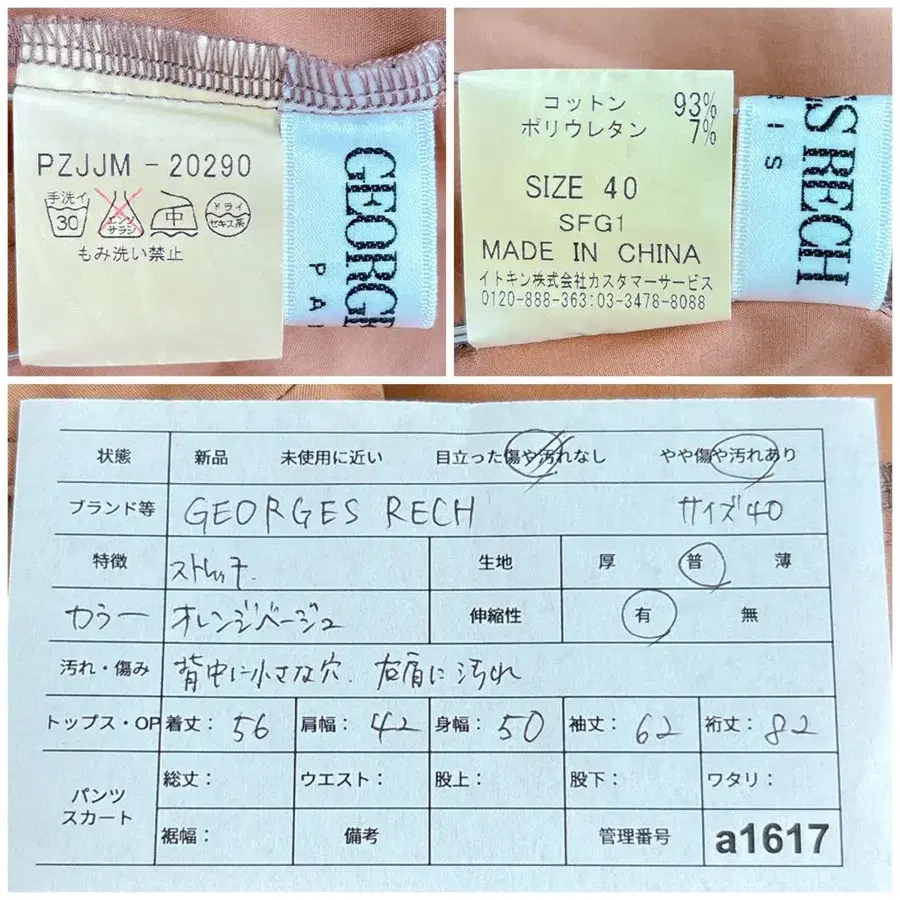 PZJJM-20290
手洗イ
30
エンソ
サラシ
中
ドライ
セキユ系
もみ洗い禁止
GEORGE
PA
コットン 93%
ポリウレタン 7%
SIZE 40
SFG1
MADE IN CHINA
イトキン株式会社カスタマーサービス
0120-888-363:03-3478-8088
ES RECH
RIS
状態 新品 未使用に近い 目立った傷や汚れなし やや傷や汚れあり
ブランド等 GEORGES RECH サイズ40
特徴 ストレッチ. 生地 厚 普 薄
カラー オレンジベージュ 伸縮性 有 無
汚れ・傷み 背中に小さな穴. 右肩に汚れ
トップス・OP 着丈: 56 肩幅: 42 身幅: 50 袖丈: 62 裄丈: 82
パンツ
スカート
総丈: ウエスト: 股上: 股下: ワタリ:
裾幅: 備考 管理番号 a1617